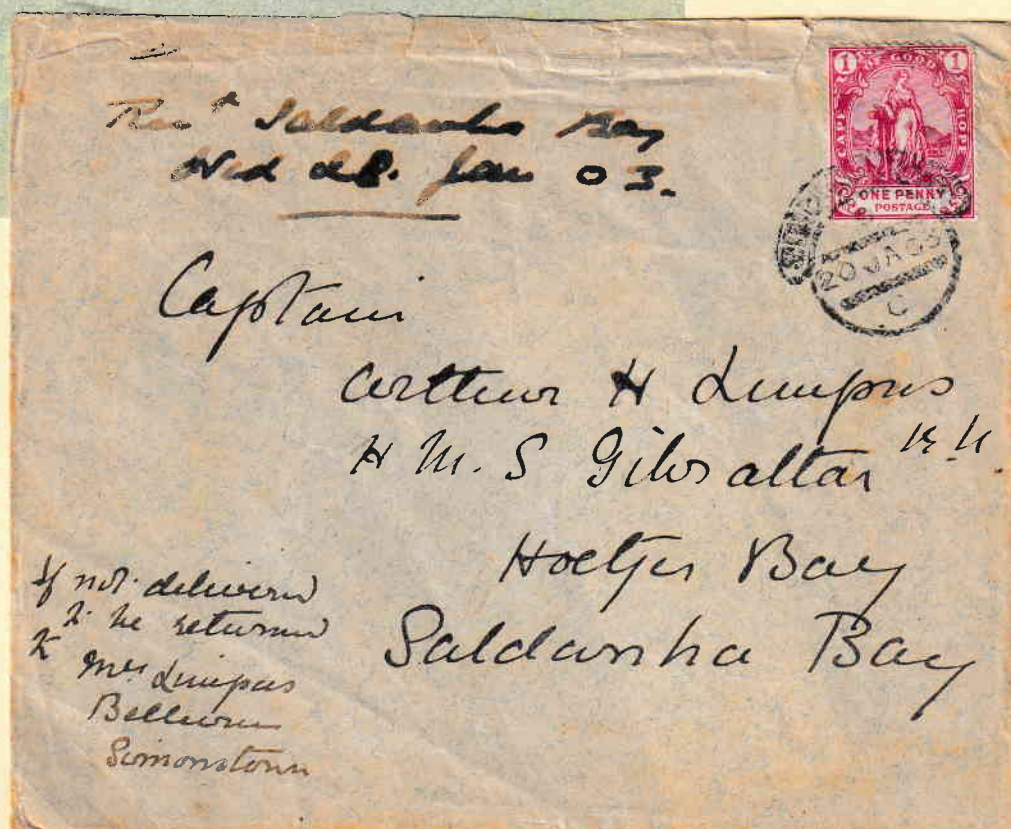 Recd Saldanha Bay
Wed 28. Jan 03.
1 OF GOOD 1
CAPE HOPE
ONE PENNY
POSTAGE
20 JA 03
C
Captain
Arthur H Limpus
H M. S Gibraltar R.N.
Hoetjes Bay
Saldanha Bay
If not delivered
to be returned
to Mrs Limpus
Simonstown